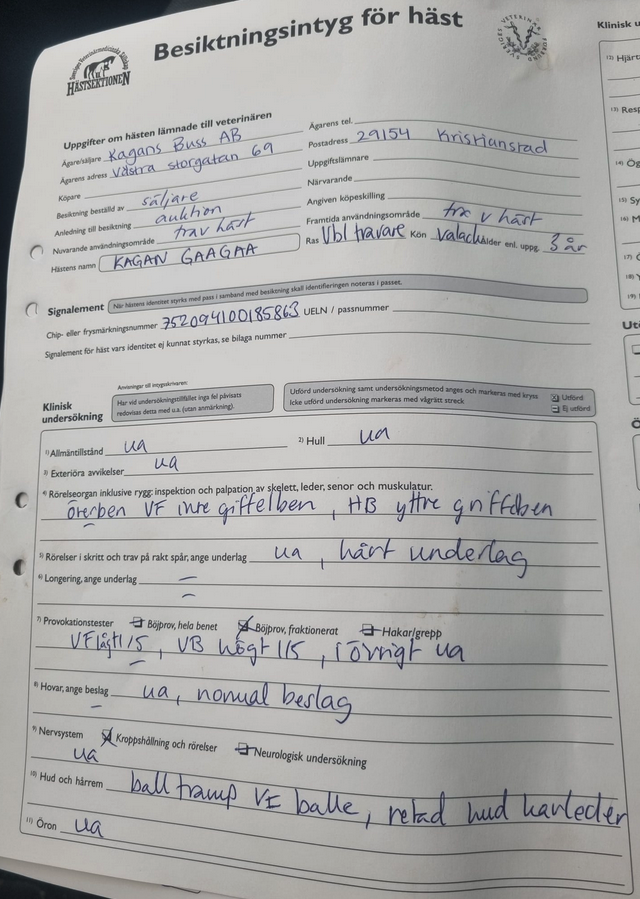 Besiktningsintyg för häst
HÄSTSEKTIONEN
Uppgifter om hästen lämnade till veterinären
Ägare/säljare Kagans Buss AB
Ägarens adress Västra storgatan 69
Köpare
Besiktning beställd av säljare
Anledning till besiktning auktion
Nuvarande användningsområde travhäst
Hästens namn KAGAN GAAGAA
Ägarens tel.
Postadress 29154 Kristianstad
Uppgiftslämnare
Närvarande
Angiven köpeskilling
Framtida användningsområde häst
Ras Vbl travare Kön valack Ålder enl. uppg. 3 år
Signalement När hästens identitet styrks med pass i samband med besiktning skall identifieringen noteras i passet.
Chip- eller frysmärkningsnummer 752094100185863 UELN / passnummer
Signalement för häst vars identitet ej kunnat styrkas, se bilaga nummer
Klinisk undersökning
Anvisningar till intygsskrivaren:
Har vid undersökningstillfället inga fel påvisats
redovisas detta med u.a. (utan anmärkning).
Utförd undersökning samt undersökningsmetod anges och markeras med kryss
Icke utförd undersökning markeras med vågrätt streck
Utförd
Ej utförd
1) Allmäntillstånd ua
2) Hull ua
3) Exteriöra avvikelser ua
4) Rörelseorgan inklusive rygg: inspektion och palpation av skelett, leder, senor och muskulatur.
överben VF inre griffelben, HB yttre griffelben
5) Rörelser i skritt och trav på rakt spår, ange underlag ua, hårt underlag
6) Longering, ange underlag –
7) Provokationstester Böjprov, hela benet Böjprov, fraktionerat Hakar/grepp
VF lågt 1/5, VB högt 1/5, i övrigt ua
8) Hovar, ange beslag ua, normal beslag
9) Nervsystem Kroppshållning och rörelser Neurologisk undersökning
ua
10) Hud och hårrem balltramp balle, retad hud karleder
11) Öron ua
Klinisk u
(12) Hjärt
(13) Resp
(14) Ög
(15) Sy
(16) M
(17)
(18)
(19)
Ut